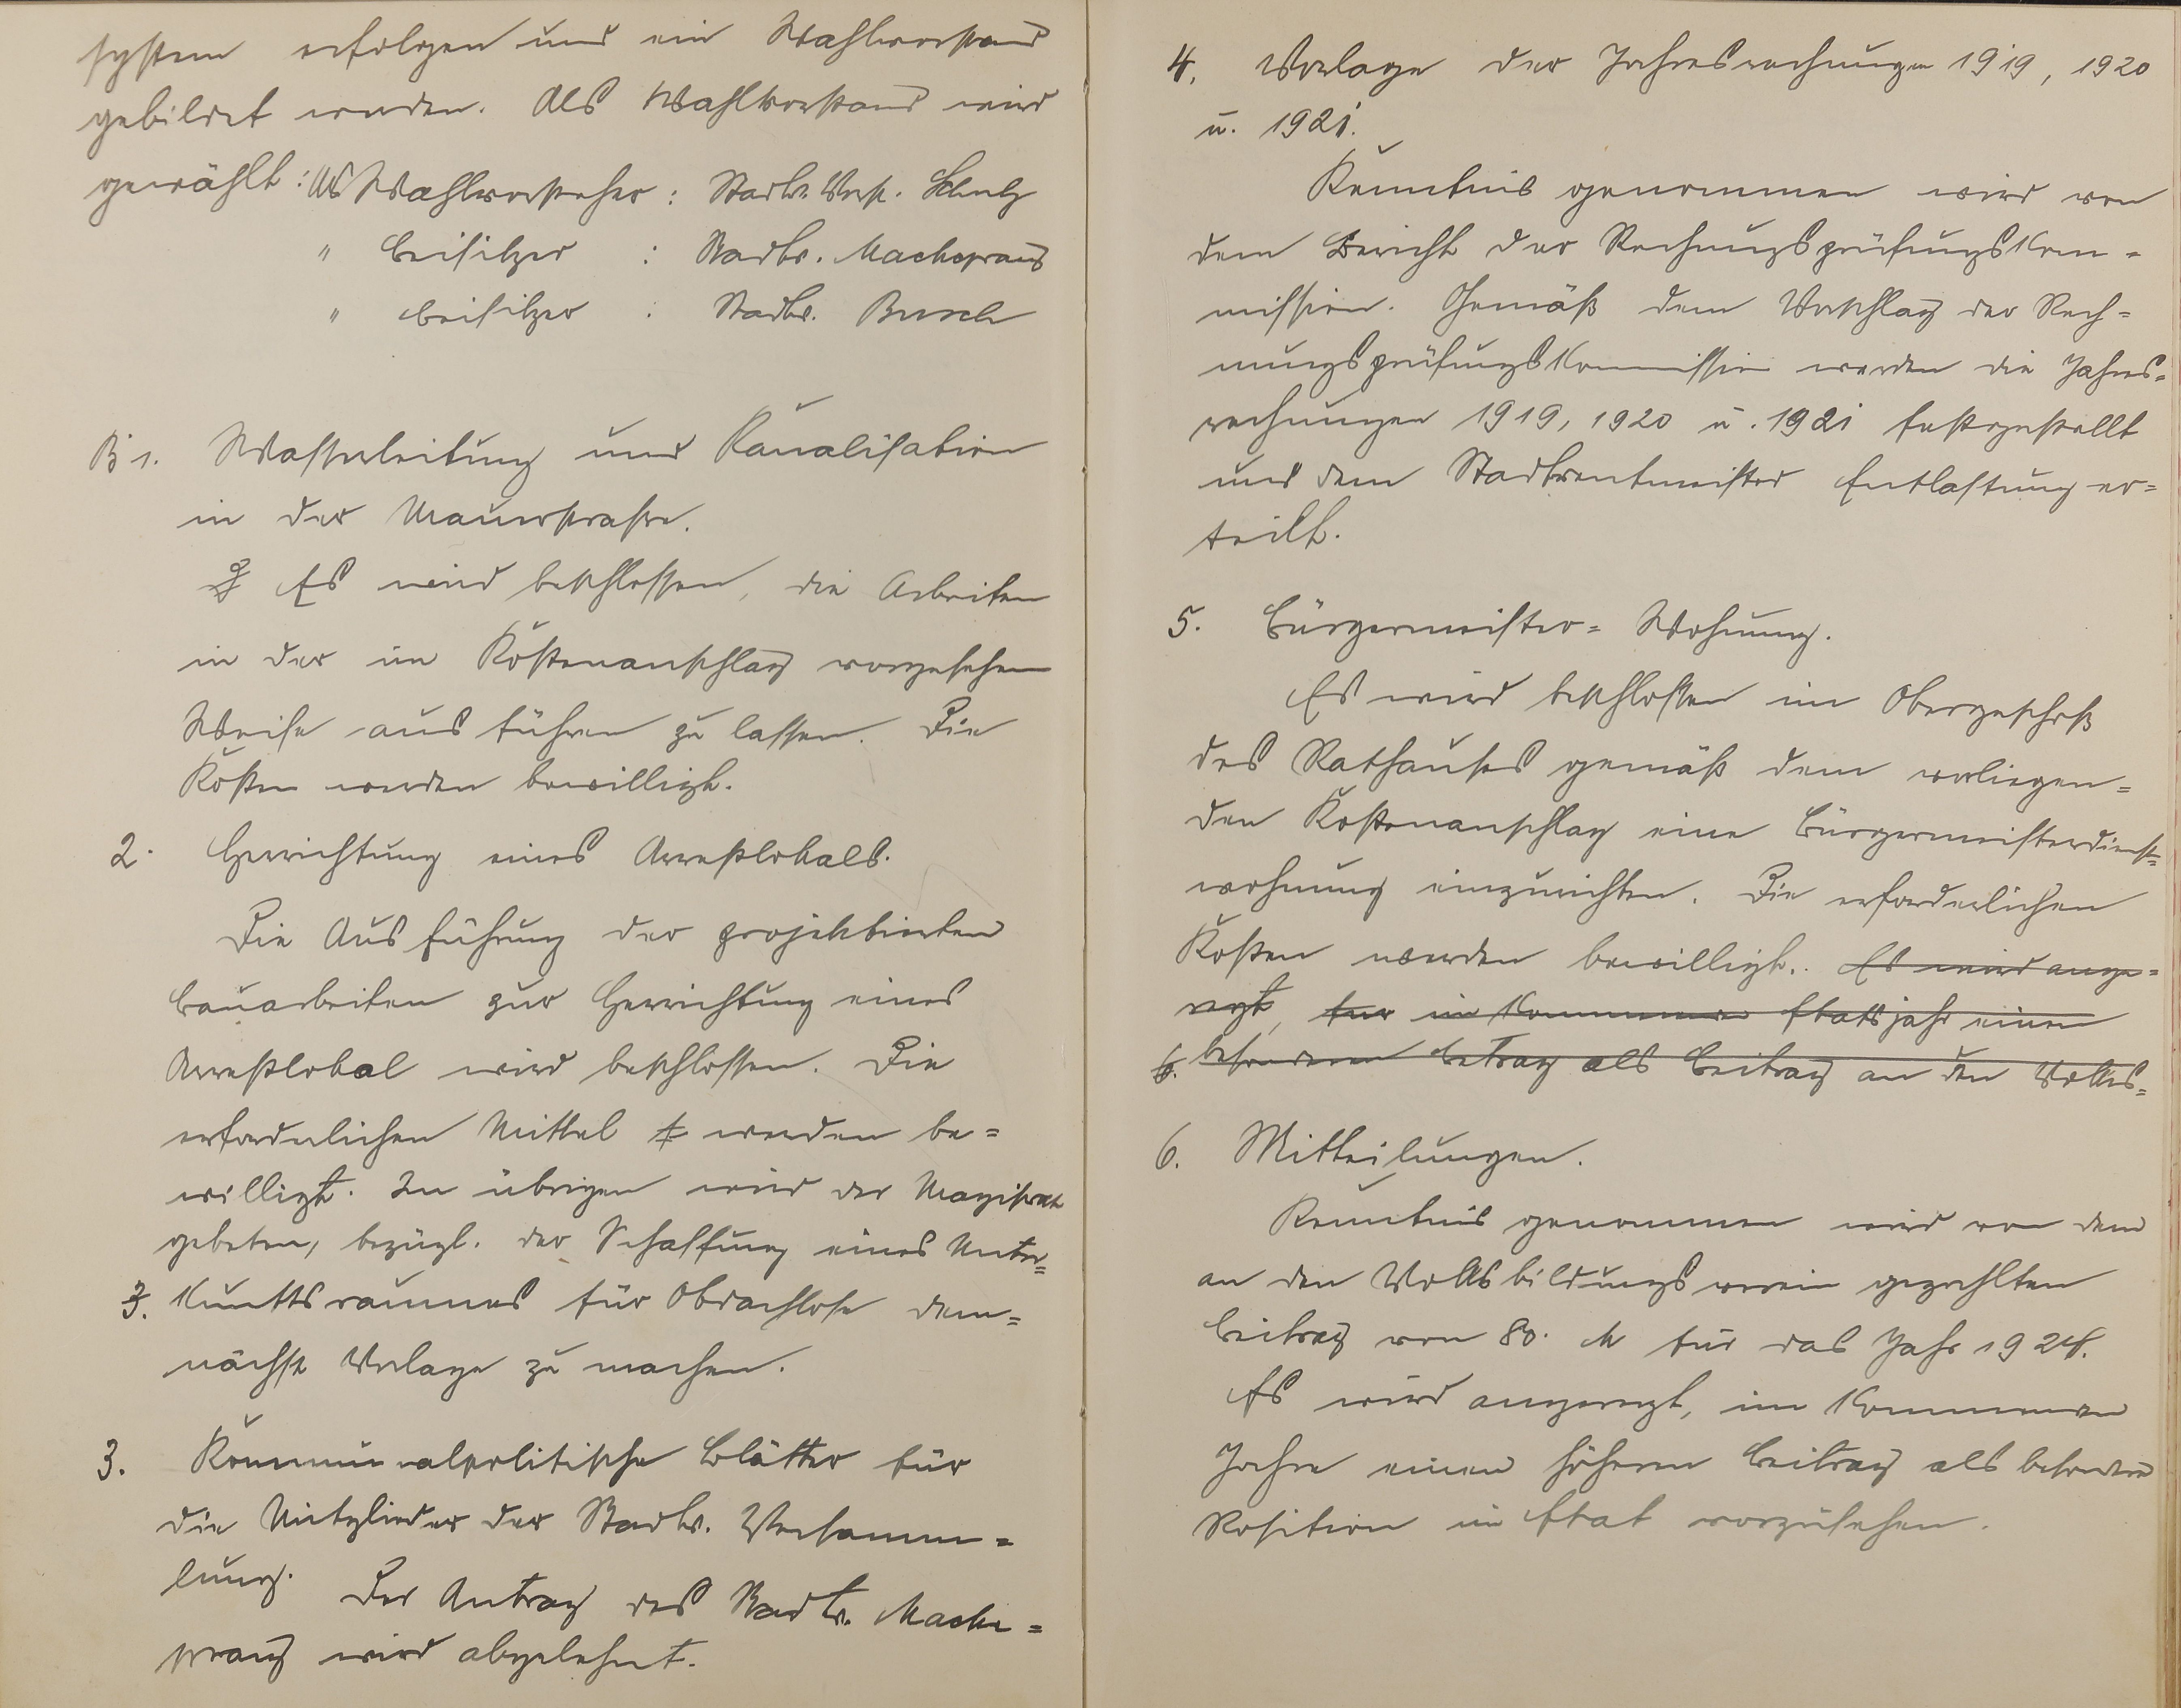 system erfolgen und ein Wahlvorstand
gebildet werden. Als Wahlvorstand wird
gewählt: Als Wahlvorsteher: Stadtv. Vorst. Schulz
" Beisitzer : Stadtv.
" Beisitzer : Stadtv. Busch
B 1. Wasserleitung und Kanalisation
in der Mauerstrasse.
Es wird beschlossen, die Arbeiten
in der im Kostenanschlag vorgesehen
Weise ausführen zu lassen. Die
Kosten werden bewilligt.
2. Herrichtung eines Arrestlokals.
Die Ausführung der projektierten
Bauarbeiten zur Herrichtung eines
Arrestlokal wird beschlossen. Die
erforderlichen Mittel werden be=
willigt. Im übrigen wird der Magistrat
gebeten, bezügl. der Schaffung eines Unter=
3. kunftsraumes für Obdachlose dem=
nächst Vorlage zu machen.
3. Kommunalpolitische Blätter für
die Mitglieder der Stadtv. Versamm=
lung. Der Antrag des Stadtv.
wird abgelehnt.
4. Vorlage der Jahresrechnungen 1919, 1920
u. 1921.
Kenntnis genommen wird von
dem Bericht der Rechnungsprüfungskom=
mission. Gemäß dem Vorschlag der Rech=
nungsprüfungskommission werden die Jahres=
rechnungen 1919, 1920 u. 1921 festgestellt
und dem Stadtrentmeister Entlastung er=
teilt.
5. Bürgermeister=Wohnung.
Es wird beschlossen im Obergeschoß
des Rathauses gemäß dem vorliegen=
den Kostenanschlag eine Bürgermeisterdienst=
wohnung einzurichten. Die erforderlichen
Kosten werden bewilligt. Es wird ange=
regt, für im kommenden Etatsjahr einen
6. besonderen Betrag als Beitrag an den Volks=
6. Mitteilungen.
Kenntnis genommen wird von dem
an den Volksbildungsverein gezahlten
Beitrag von 80. M für das Jahr 1924.
Es wird angeregt, im kommenden
Jahre einen höheren Beitrag als besondere
Position im Etat vorzusehen.